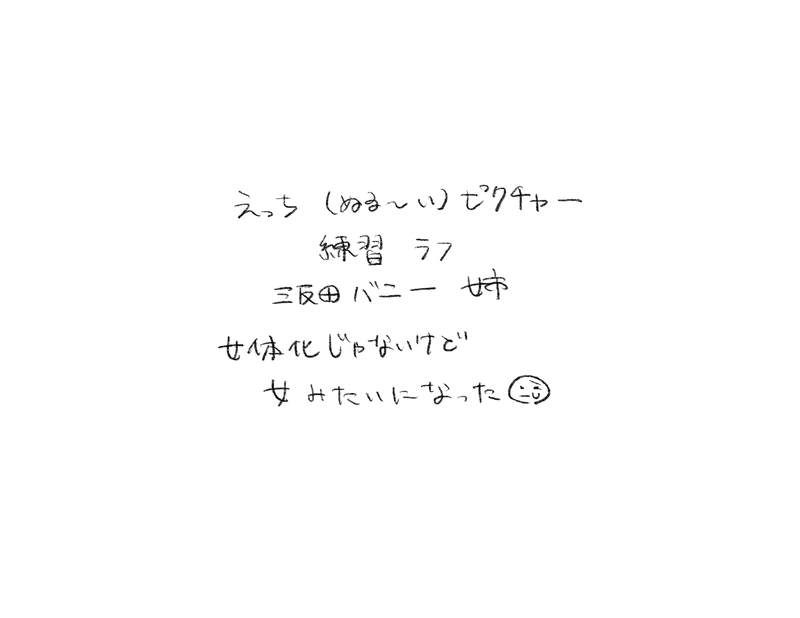 えっち (ぬる～い) ピクチャー
練習 ラフ
三坂田バニー 姉
女体化じゃないけど
女みたいになった